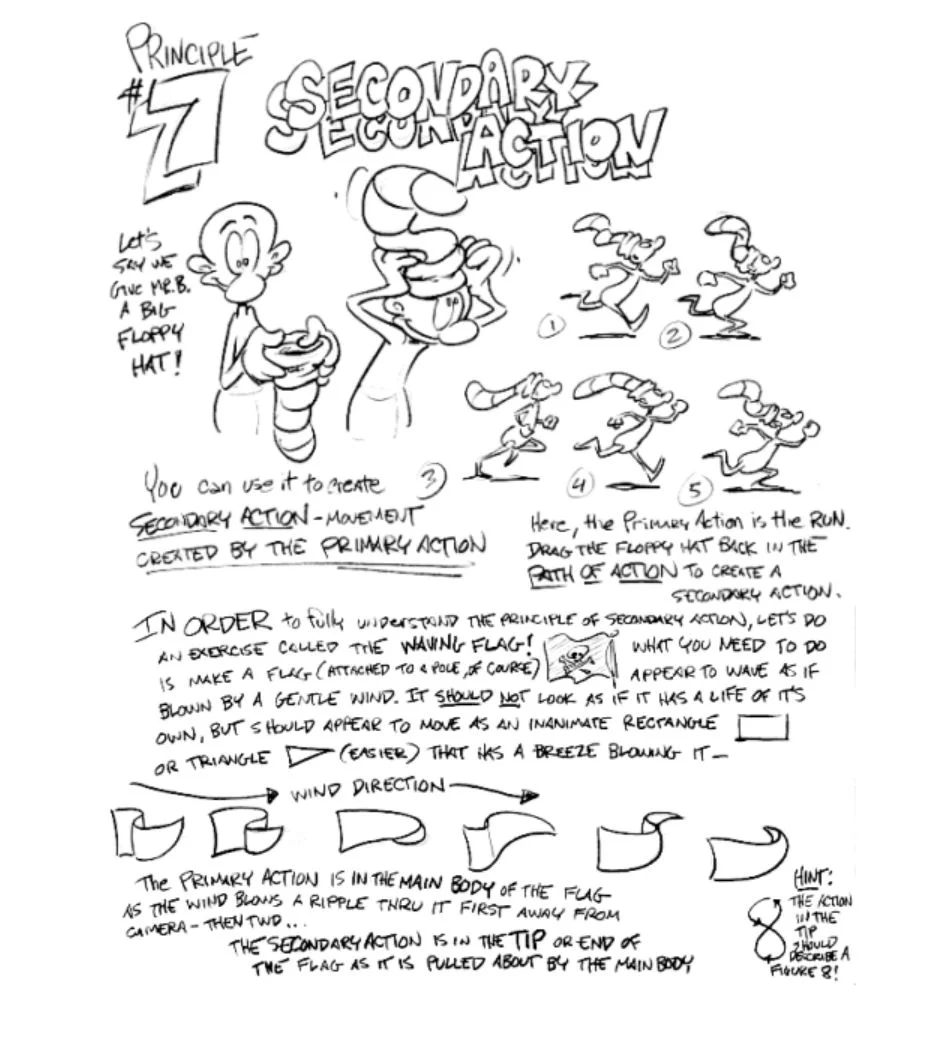 PRINCIPLE
#7
SECONDARY
ACTION
Let's
SAY WE
GIVE MR.B.
A BIG
FLOPPY
HAT!
1
2
3
4
5
You can use it to create
SECONDARY ACTION - MOVEMENT
CREATED BY THE PRIMARY ACTION
Here, the Primary Action is the RUN.
DRAG THE FLOPPY HAT BACK IN THE
PATH OF ACTION TO CREATE A
SECONDARY ACTION.
IN ORDER to fully UNDERSTAND THE PRINCIPLE OF SECONDARY ACTION, LET'S DO
AN EXERCISE CALLED THE WAVING FLAG! WHAT YOU NEED TO DO
IS MAKE A FLAG (ATTACHED TO A POLE, OF COURSE) APPEAR TO WAVE AS IF
BLOWN BY A GENTLE WIND. IT SHOULD NOT LOOK AS IF IT HAS A LIFE OF IT'S
OWN, BUT SHOULD APPEAR TO MOVE AS AN INANIMATE RECTANGLE
OR TRIANGLE (EASIER) THAT HAS A BREEZE BLOWING IT —
WIND DIRECTION
The PRIMARY ACTION IS IN THE MAIN BODY OF THE FLAG
AS THE WIND BLOWS A RIPPLE THRU IT FIRST AWAY FROM
CAMERA - THEN TWD...
THE SECONDARY ACTION IS IN THE TIP OR END OF
THE FLAG AS IT IS PULLED ABOUT BY THE MAIN BODY
HINT:
THE ACTION
IN THE
TIP
SHOULD
DESCRIBE A
FIGURE 8!